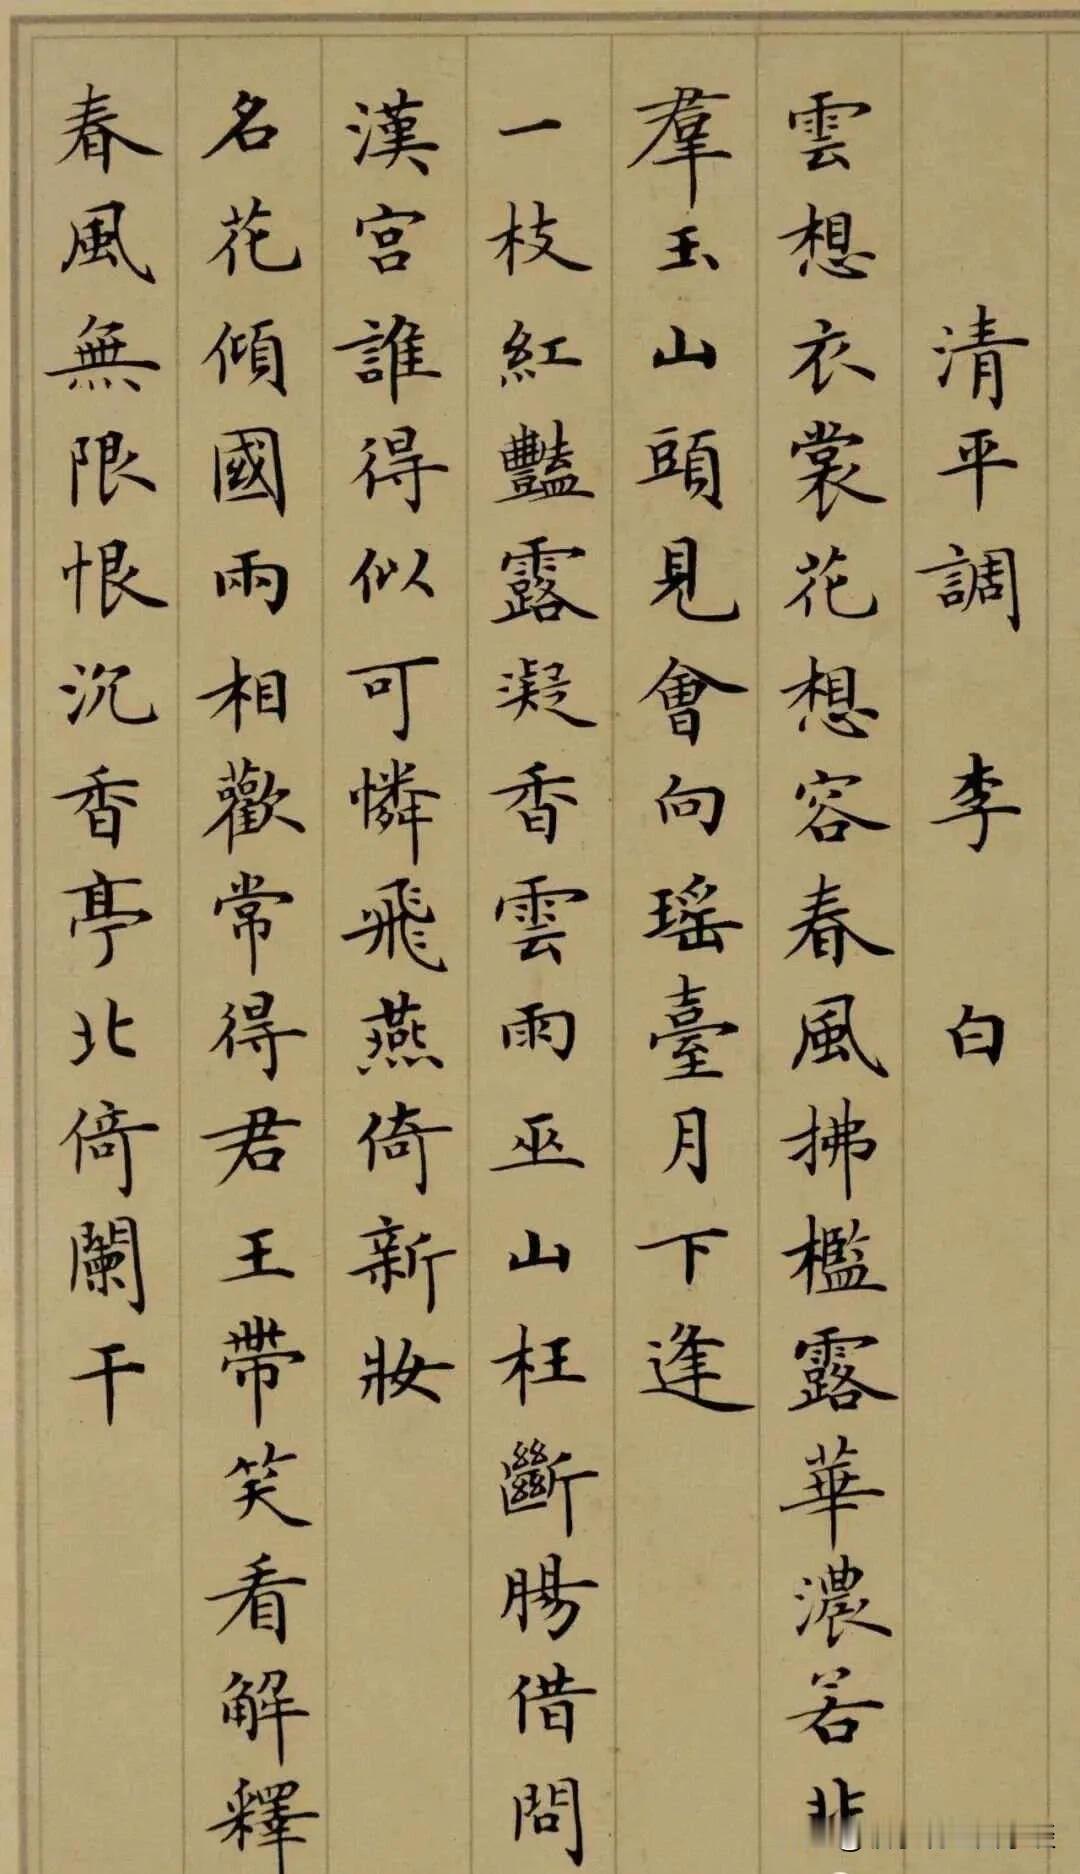 清平調 李白
雲想衣裳花想容春風拂檻露華濃若非
羣玉山頭見會向瑤臺月下逢
一枝紅豔露凝香雲雨巫山枉斷腸借問
漢宮誰得似可憐飛燕倚新妝
名花傾國兩相歡常得君王帶笑看解釋
春風無限恨沉香亭北倚闌干